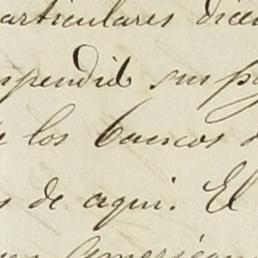 articulares dice
spendió sus pa
los bancos
s de aqui. El